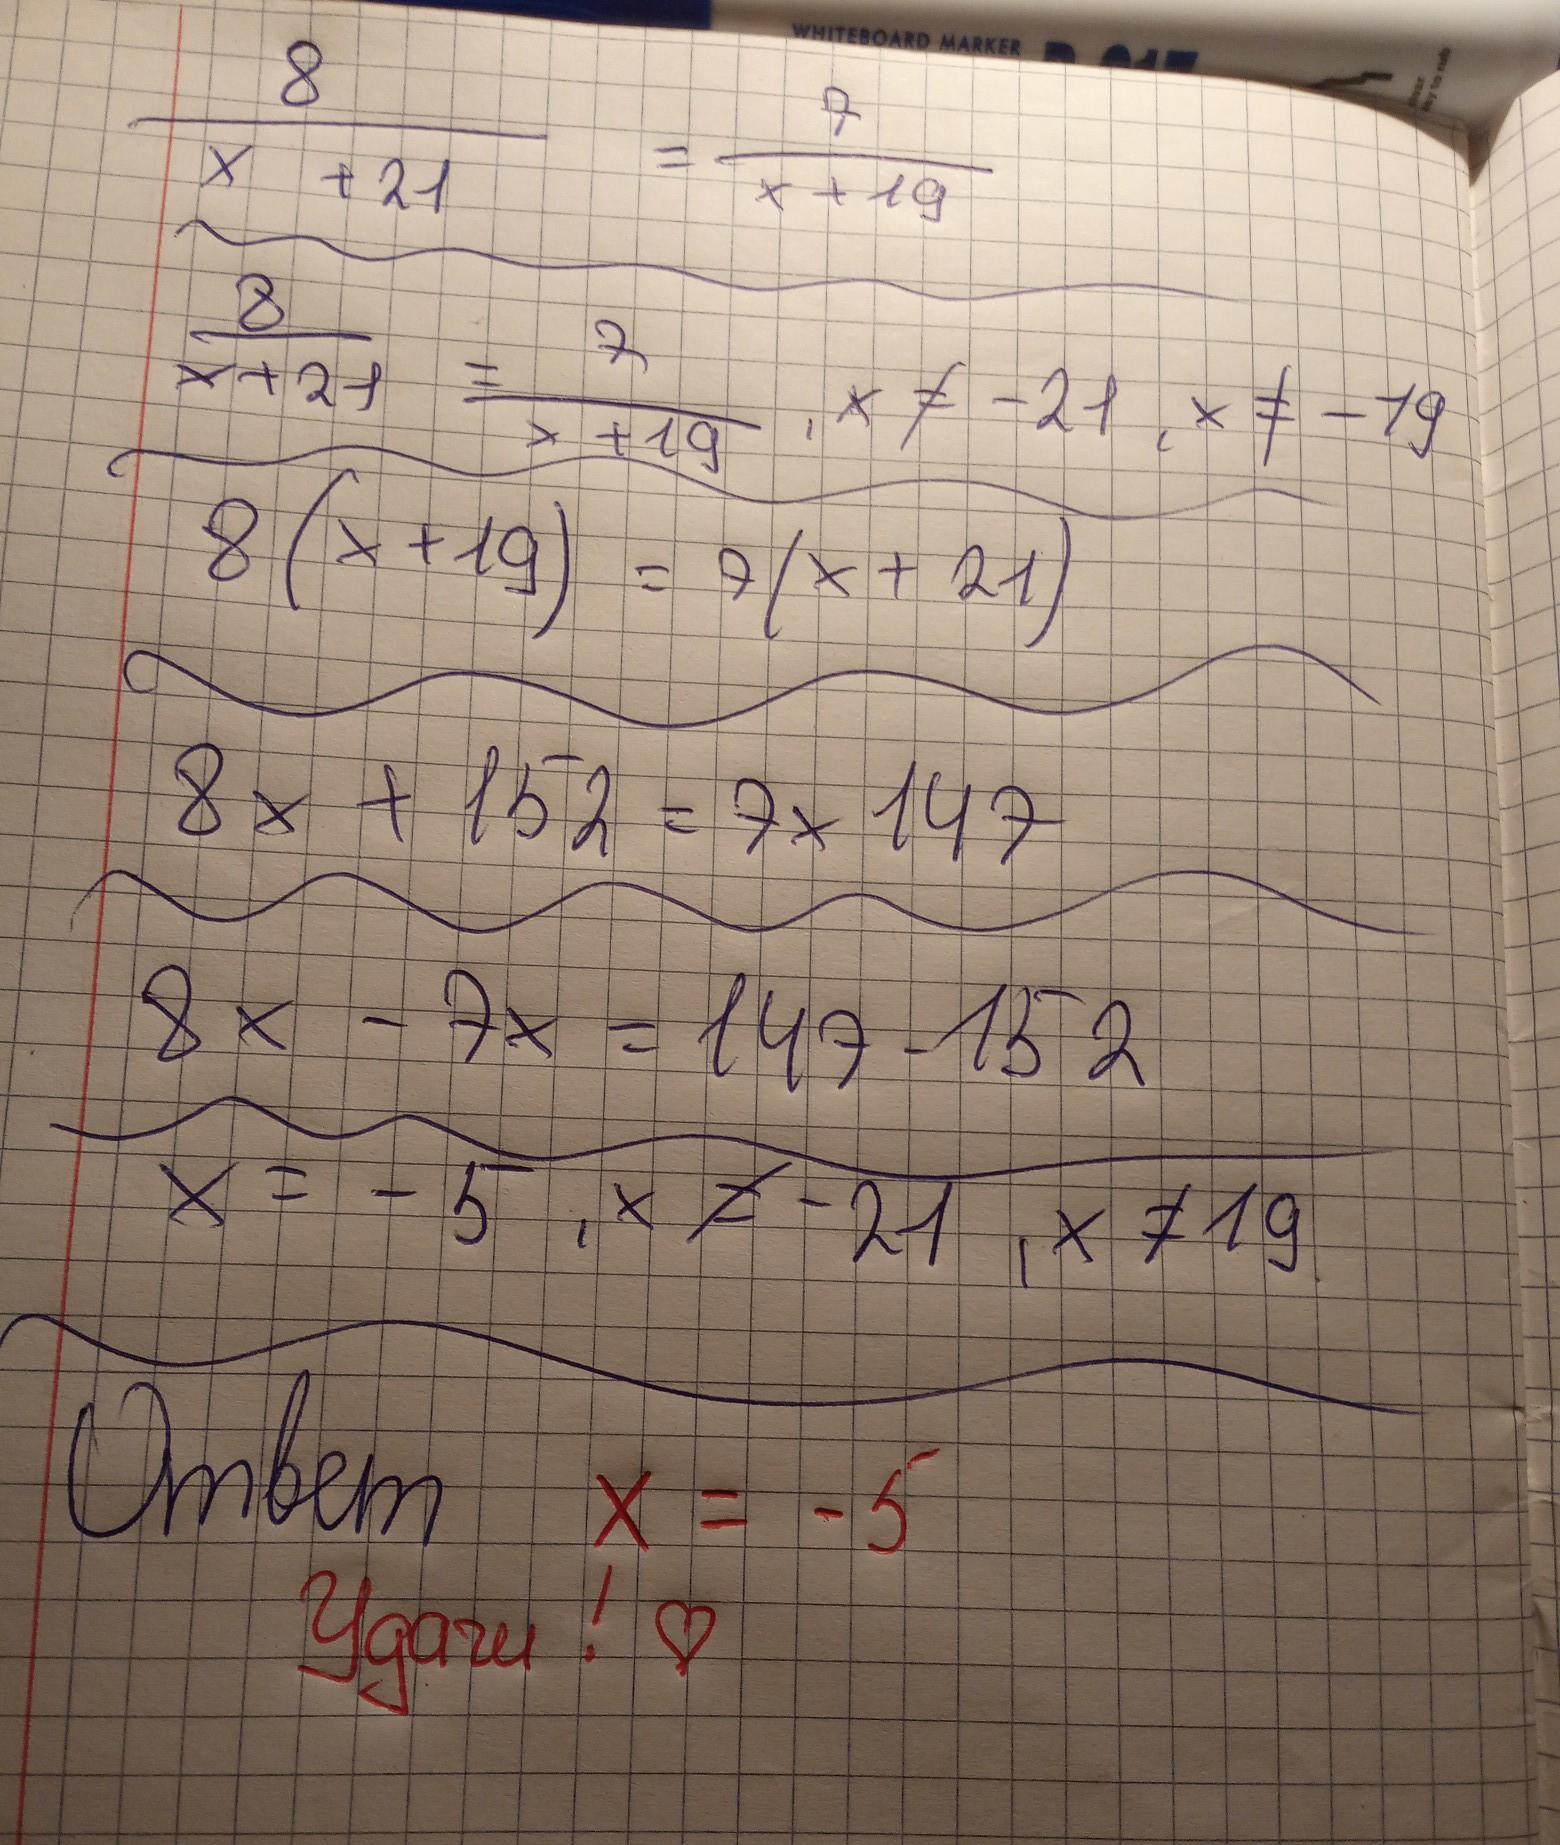 WHITEBOARD MARKER
8 / x + 21 = 7 / x + 19
8 / x + 21 = 7 / x + 19 , x ≠ - 21 , x ≠ - 19
8 (x + 19) = 7 (x + 21)
8x + 152 = 7x 147
8x - 7x = 147 - 152
x = - 5 , x ≠ - 21 , x ≠ 19
Ответ x = - 5
Удачи! ♡